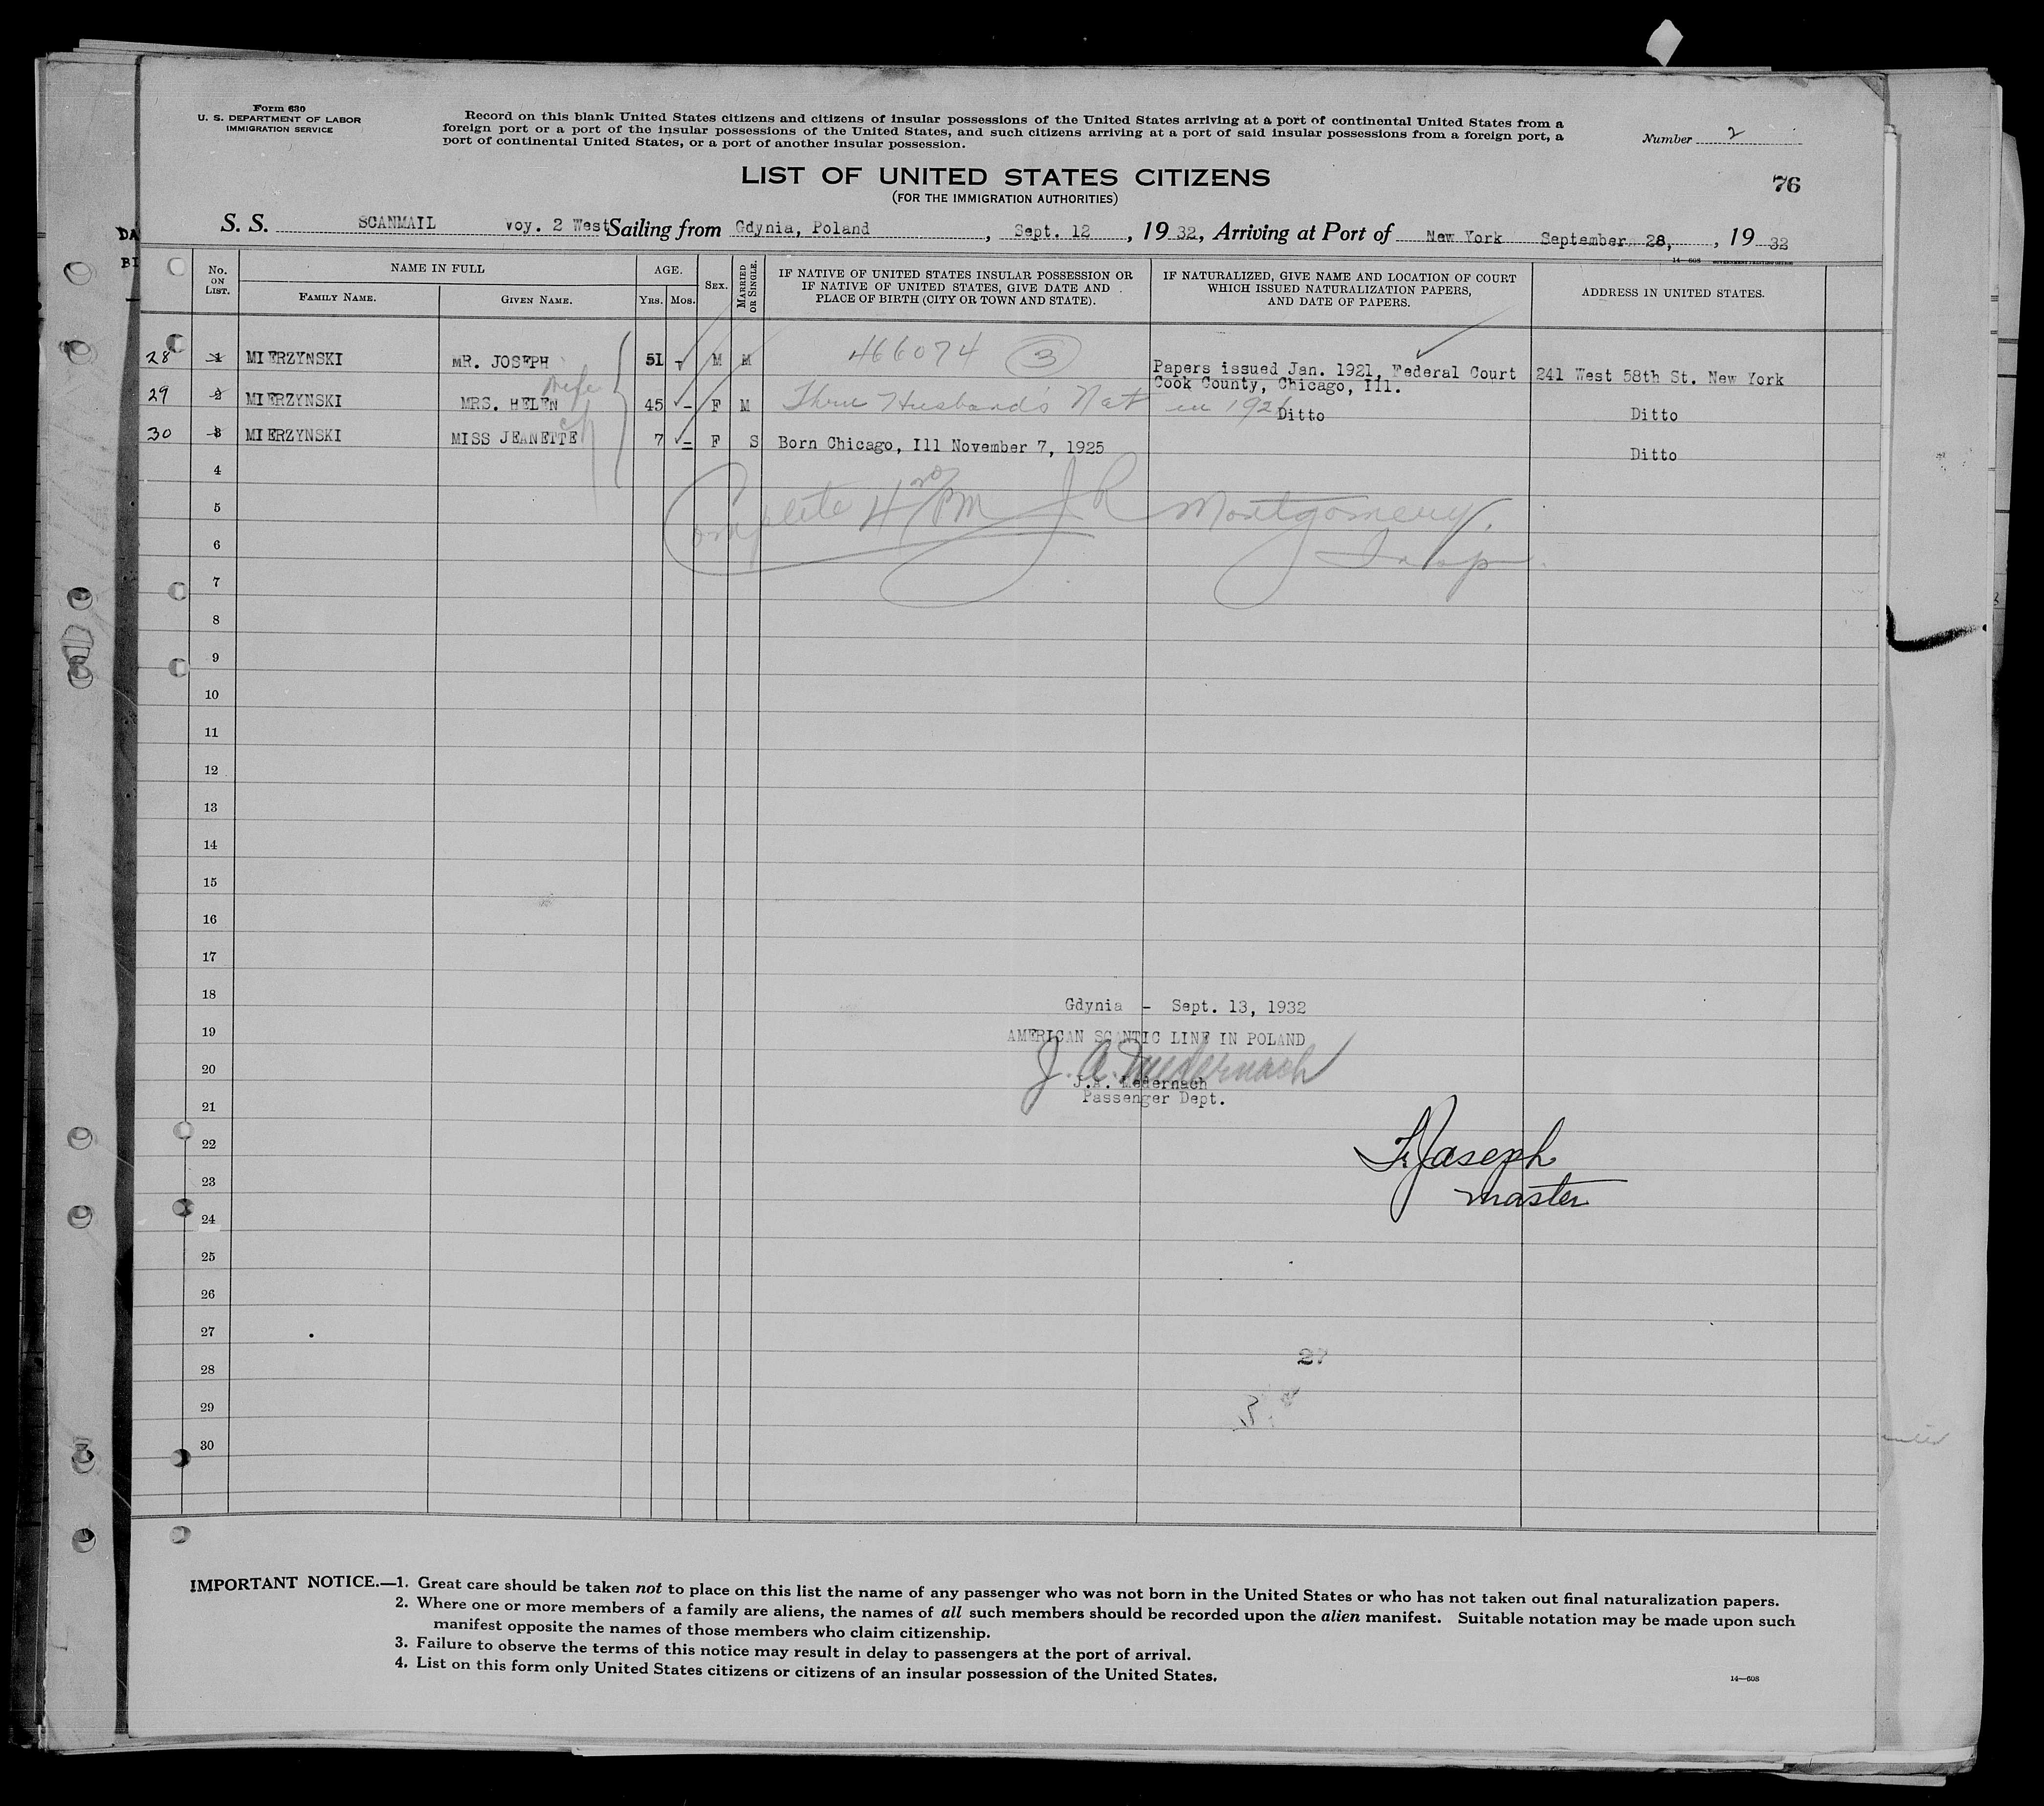 Form 630
U. S. DEPARTMENT OF LABOR
IMMIGRATION SERVICE
Record on this blank United States citizens and citizens of insular possessions of the United States arriving at a port of continental United States from a
foreign port or a port of the insular possessions of the United States, and such citizens arriving at a port of said insular possessions from a foreign port, a
port of continental United States, or a port of another insular possession.
Number 2
LIST OF UNITED STATES CITIZENS
(FOR THE IMMIGRATION AUTHORITIES)
76
S. S. SCANMAIL voy. 2 West Sailing from Gdynia, Poland, Sept. 12, 1932, Arriving at Port of New York September 28, , 1932
14-608
No. ON LIST.
NAME IN FULL
FAMILY NAME.
GIVEN NAME.
AGE.
YRS.
MOS.
SEX.
MARRIED OR SINGLE.
IF NATIVE OF UNITED STATES INSULAR POSSESSION OR
IF NATIVE OF UNITED STATES, GIVE DATE AND
PLACE OF BIRTH (CITY OR TOWN AND STATE).
IF NATURALIZED, GIVE NAME AND LOCATION OF COURT
WHICH ISSUED NATURALIZATION PAPERS,
AND DATE OF PAPERS.
ADDRESS IN UNITED STATES.
28 1 MIERZYNSKI MR. JOSEPH 51 - M M 466074 3 Papers issued Jan. 1921, Federal Court
Cook County, Chicago, Ill. 241 West 58th St. New York
wife
29 2 MIERZYNSKI MRS. HELEN 45 - F M Thru Husband's Nat in 1921 Ditto Ditto
ch
30 3 MIERZYNSKI MISS JEANETTE 7 - F S Born Chicago, Ill November 7, 1925 Ditto
4
Complete 4 PM J R Montgomery,
5
Insp.
6
7
8
9
10
11
12
13
14
15
16
17
18
Gdynia - Sept. 13, 1932
19
AMERICAN SCANTIC LINE IN POLAND
J. A. Medernach
20
J.A. Medernach
Passenger Dept.
21
22
F. Joseph
23
master
24
25
26
27
27
28
29
30
IMPORTANT NOTICE.—1. Great care should be taken not to place on this list the name of any passenger who was not born in the United States or who has not taken out final naturalization papers.
2. Where one or more members of a family are aliens, the names of all such members should be recorded upon the alien manifest. Suitable notation may be made upon such
manifest opposite the names of those members who claim citizenship.
3. Failure to observe the terms of this notice may result in delay to passengers at the port of arrival.
4. List on this form only United States citizens or citizens of an insular possession of the United States.
14—608